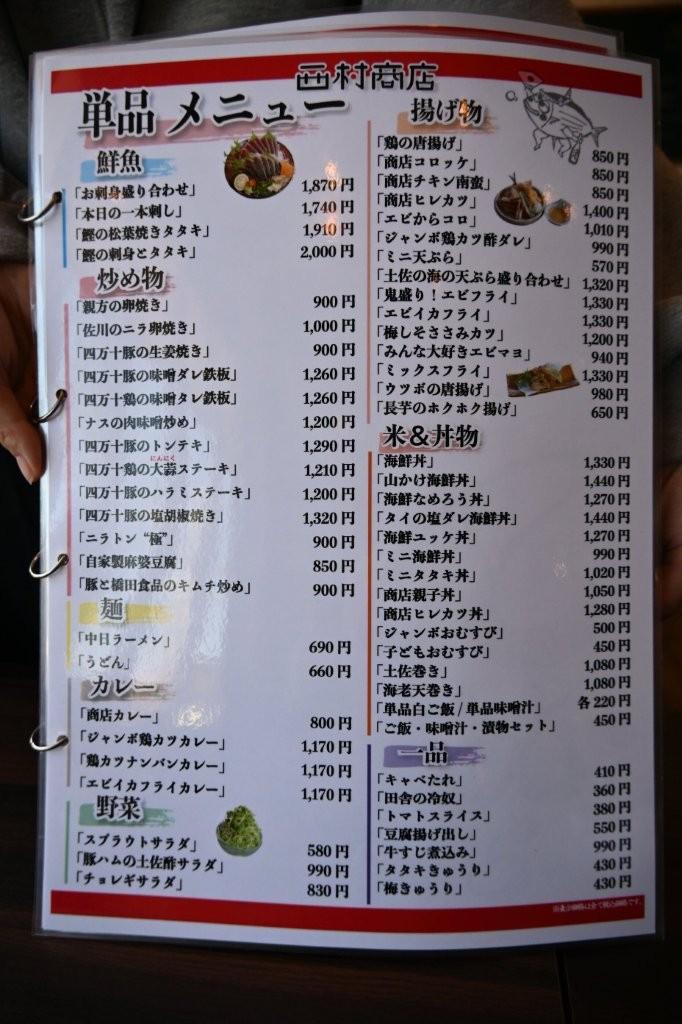 西村商店
単品 メニュー
鮮魚
「お刺身盛り合わせ」 1,870円
「本日の一本刺し」 1,740円
「鰹の松葉焼きタタキ」 1,910円
「鰹の刺身とタタキ」 2,000円
炒め物
「親方の卵焼き」 900円
「佐川のニラ卵焼き」 1,000円
「四万十豚の生姜焼き」 900円
「四万十豚の味噌ダレ鉄板」 1,260円
「四万十鶏の味噌タレ鉄板」 1,260円
「ナスの肉味噌炒め」 1,200円
「四万十豚のトンテキ」 1,290円
にんにく
「四万十鶏の大蒜ステーキ」 1,210円
「四万十豚のハラミステーキ」 1,200円
「四万十豚の塩胡椒焼き」 1,320円
「ニラトン“極”」 900円
「自家製麻婆豆腐」 850円
「豚と橋田食品のキムチ炒め」 900円
麺
「中日ラーメン」 690円
「うどん」 660円
カレー
「商店カレー」 800円
「ジャンボ鶏カツカレー」 1,170円
「鶏カツナンバンカレー」 1,170円
「エビイカフライカレー」 1,170円
野菜
「スプラウトサラダ」 580円
「豚ハムの土佐酢サラダ」 990円
「チョレギサラダ」 830円
揚げ物
「鶏の唐揚げ」 850円
「商店コロッケ」 850円
「商店チキン南蛮」 850円
「商店ヒレカツ」 1,400円
「エビからコロ」 1,010円
「ジャンボ鶏カツ酢ダレ」 990円
「ミニ天ぷら」 570円
「土佐の海の天ぷら盛り合わせ」 1,320円
「鬼盛り！エビフライ」 1,330円
「エビイカフライ」 1,330円
「梅しそささみカツ」 1,200円
「みんな大好きエビマヨ」 940円
「ミックスフライ」 1,330円
「ウツボの唐揚げ」 980円
「長芋のホクホク揚げ」 650円
米＆丼物
「海鮮丼」 1,330円
「山かけ海鮮丼」 1,440円
「海鮮なめろう丼」 1,270円
「タイの塩ダレ海鮮丼」 1,440円
「海鮮ユッケ丼」 1,270円
「ミニ海鮮丼」 990円
「ミニタタキ丼」 1,020円
「商店親子丼」 1,050円
「商店ヒレカツ丼」 1,280円
「ジャンボおむすび」 500円
「子どもおむすび」 450円
「土佐巻き」 1,080円
「海老天巻き」 1,080円
「単品白ご飯 / 単品味噌汁」 各 220円
「ご飯・味噌汁・漬物セット」 450円
一品
「キャベたれ」 410円
「田舎の冷奴」 360円
「トマトスライス」 380円
「豆腐揚げ出し」 550円
「牛すじ煮込み」 990円
「タタキきゅうり」 430円
「梅きゅうり」 430円